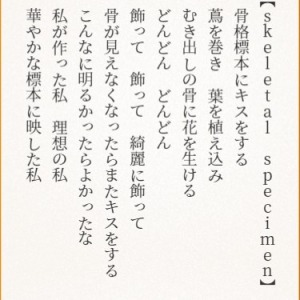 【skeletal specimen】
骨格標本にキスをする
蔦を巻き 葉を植え込み
むき出しの骨に花を生ける
どんどん どんどん
飾って 飾って 綺麗に飾って
骨が見えなくなったらまたキスをする
こんなに明るかったらよかったな
私が作った私 理想の私
華やかな標本に映した私